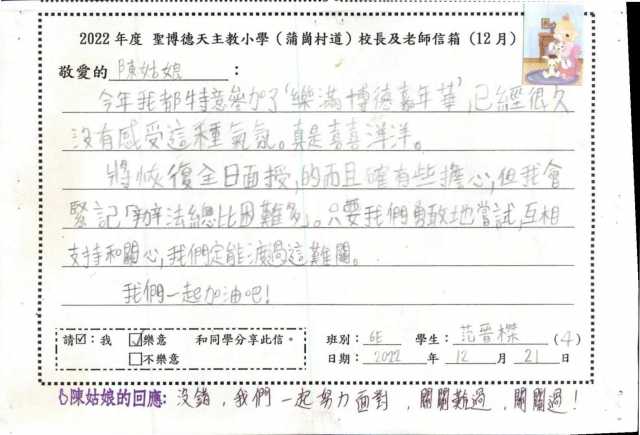 2022 年度 聖博德天主教小學(蒲崗村道)校長及老師信箱(12 月)
敬愛的 陳姑娘 :
今年我都特意參加了「樂滿博德嘉年華」,已經很久
沒有感受這種氣氛。真是喜喜洋洋。
將恢復全日面授,的而且確有些擔心,但我會
緊記「辦法總比困難多」。只要我們勇敢地嘗試,互相
支持和關心,我們定能渡過這難關。
我們一起加油吧!
請☑:我 ☑樂意 和同學分享此信。
□不樂意
班別: 6E 學生: 范晉榤 (4)
日期: 2022 年 12 月 21 日
陳姑娘的回應: 沒錯,我們一起努力面對,關關難過,關關過!